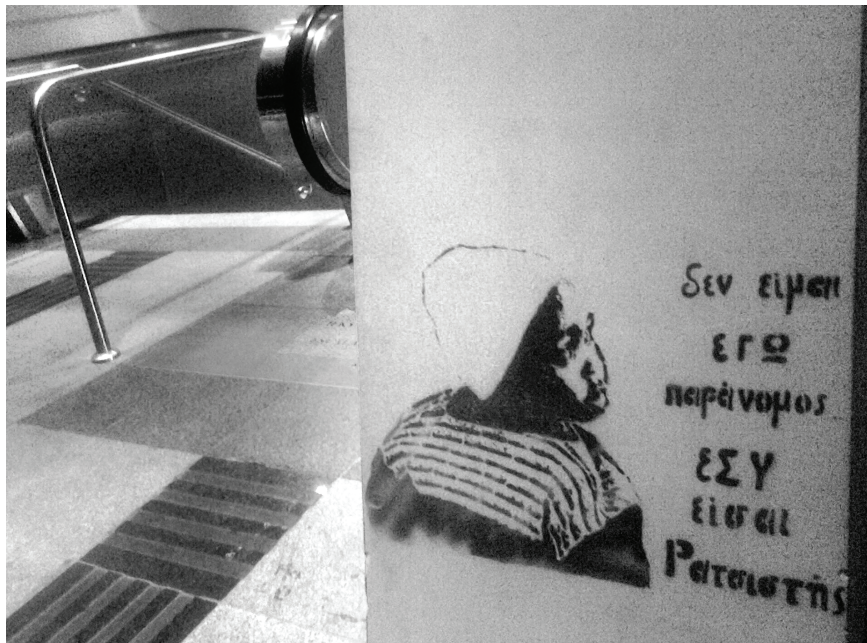 δεν είμαι
εγΩ
παράνομος
ΕΣΥ
είσαι
Ρατσιστής